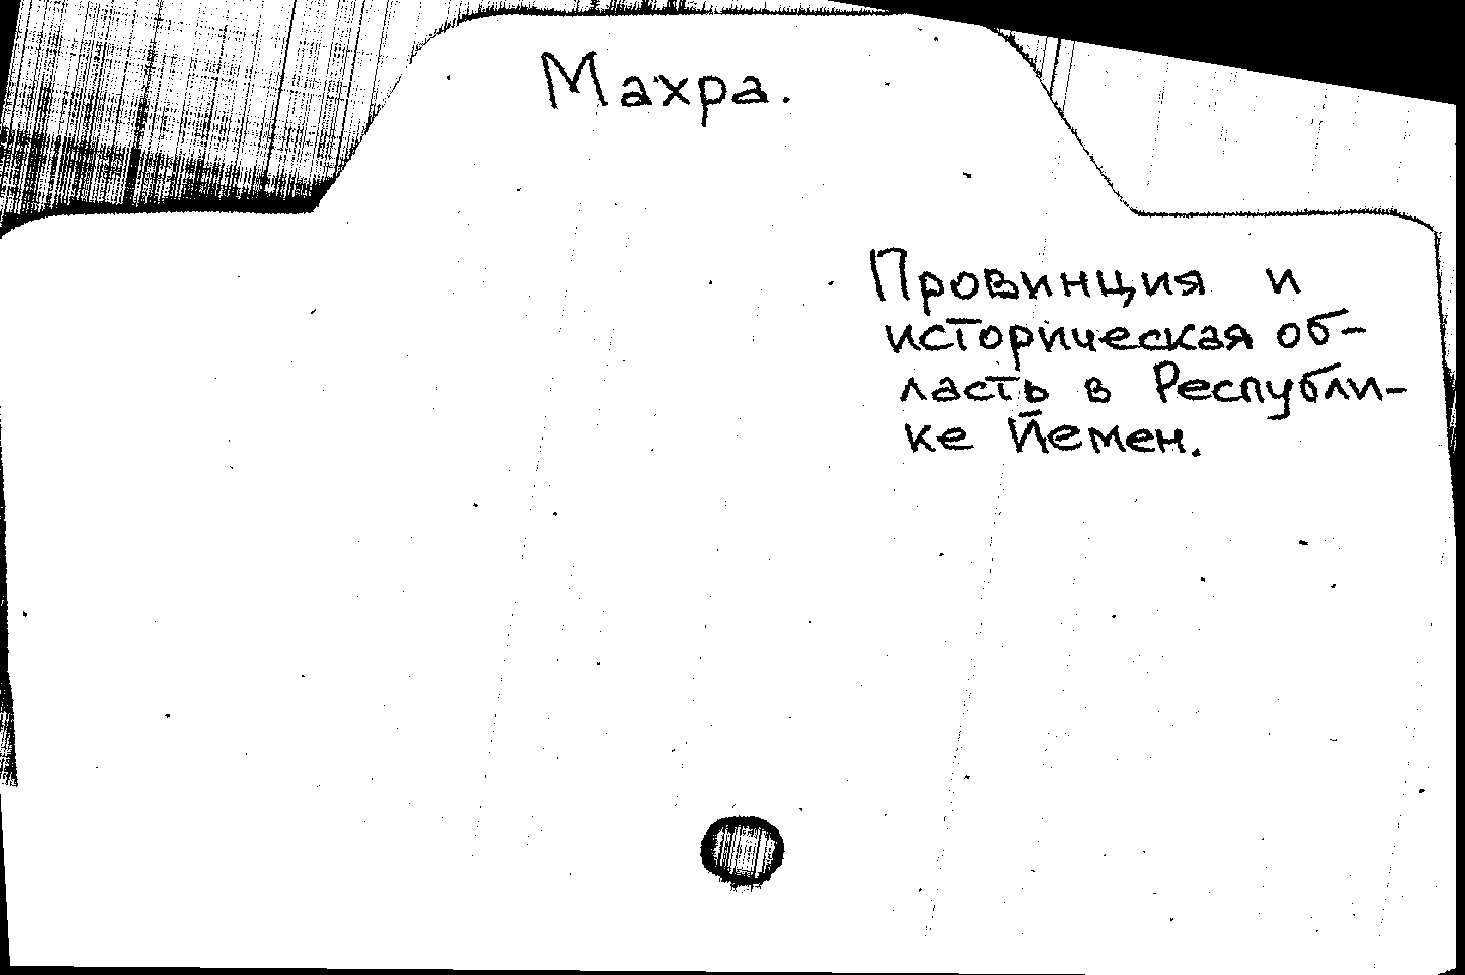 Махра.
Провинция и
историческая об-
ласть в Республи-
ке Йемен.